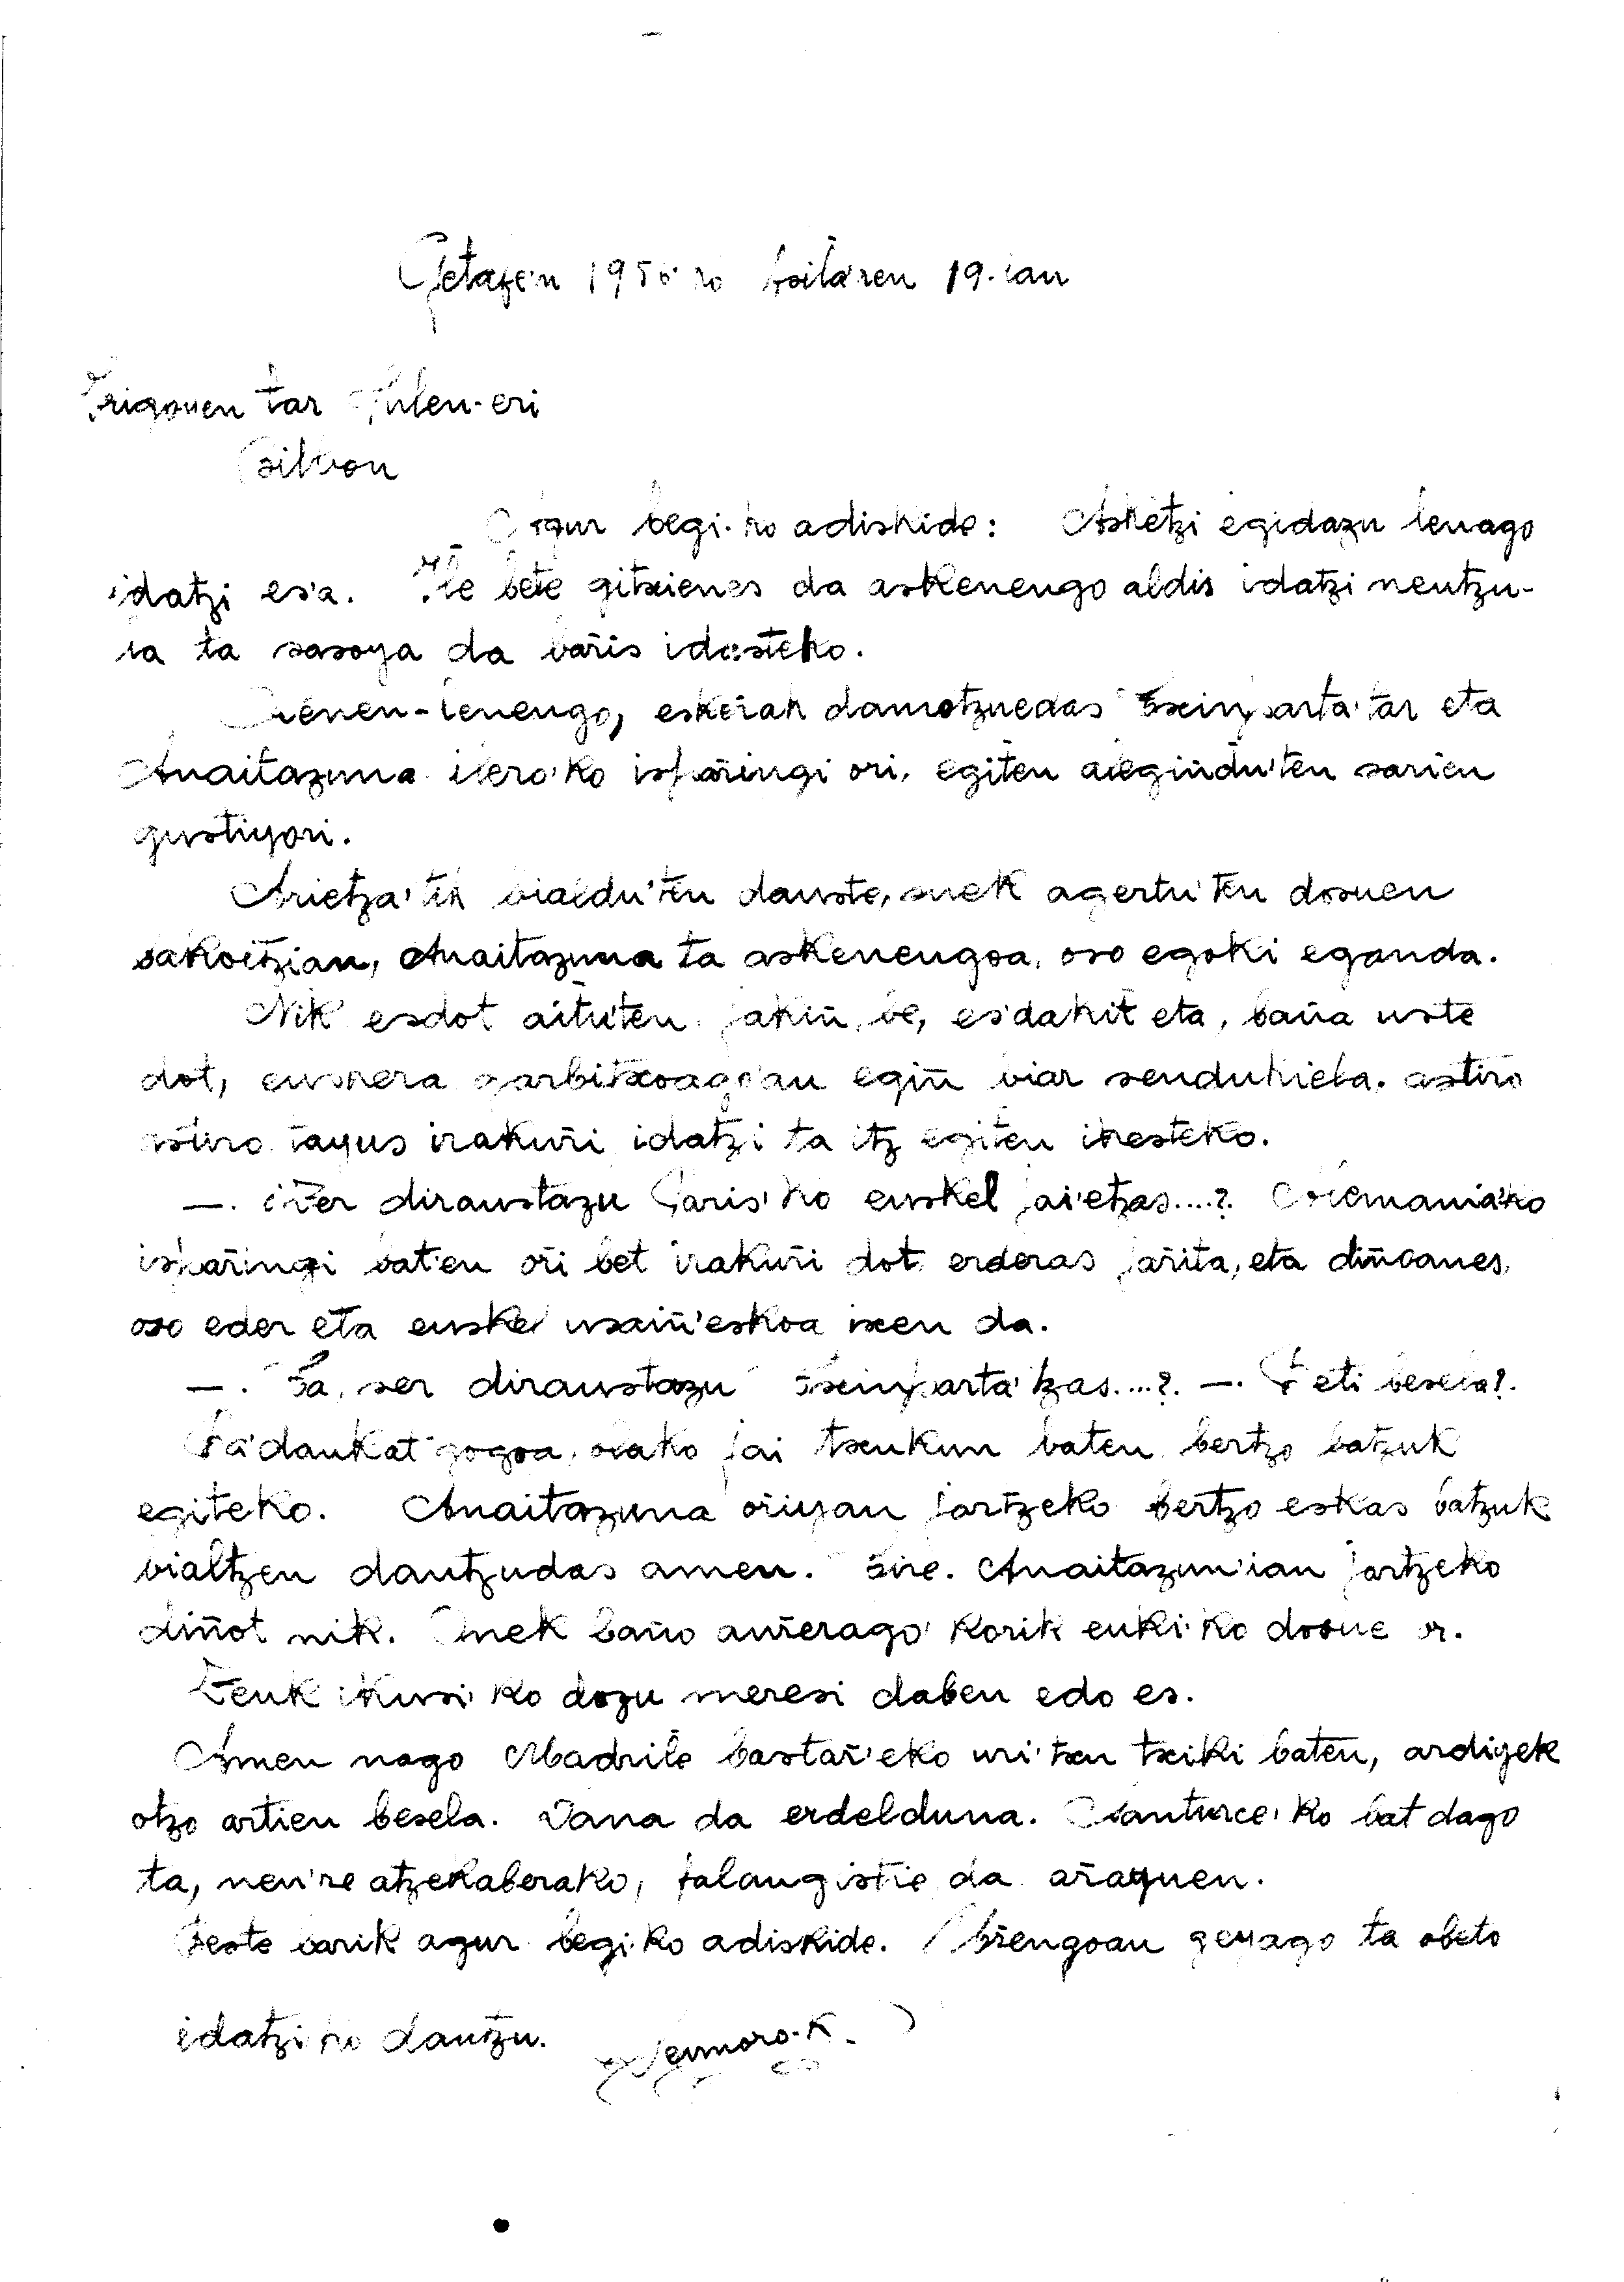 Getafen 1956'ko loilaren 19.ian
Irigoyen tar Julen-eri
Bilbon
Agur begi-ko adiskide: Asketzi egidazu lenago
idatzi es'a. Ile bete gitxienes da askenengo aldis idatzi neutzu-
la ta sasoya da bar̃is idasteko.
Lenen-lenengo, esker̃ak damotzuedas Txinparta'tar eta
Anaitazuna ilero'ko ispar̃ingi ori, egiten alegindu'ten sarien
gustiyori.
Arietza'tik bialdu'ten dauste, onek agertu'ten dosuen
bakoitzian, Anaitazuna ta askenengoa, oso egoki eganda.
Nik esdot aitu'ten jakiñ be, es'dakit eta, baña uste
dot, euskera garbitxoago'an egiñ biar sendukiela. astiro
astiro tayus irakur̃i idatzi ta itz egiten ikesteko.
—. ¿Zer diraustazu Paris'ko euskel jai'etzas....?. Alemania'ko
ispar̃ingi bat'en or̃i bet irakur̃i dot, erderas jar̃ita, eta diñoanes,
oso eder eta euskel usaiñ'eskoa ixen da.
—. Ta, ser diraustazu Txinparta'tzas....?. —. Beti besela?.
Ba'daukat gogoa, olako jai txukun baten bertzo batzuk
egiteko. Anaitazuna or̃iyan jartzeko bertzo eskas batzuk
bialtzen dautzudas amen. Bir̃e. Anaitazun'ian jartzeko
diñot nik. Onek baño aur̃erago'korik euki'ko dosue or.
Zeuk ikusi'ko dozu meresi daben edo es.
Amen nago Madrile bastar̃'eko uri'txu txiki baten, ardiyek
otzo artien besela. Dana da erdelduna. Santurce'ko bat dago
ta, neu're atzekaberako, falangistie da ar̃ayuen.
Beste barik agur begi-ko adiskide. Ur̃engoan geyago ta obeto
idatzi'ko dautzu.